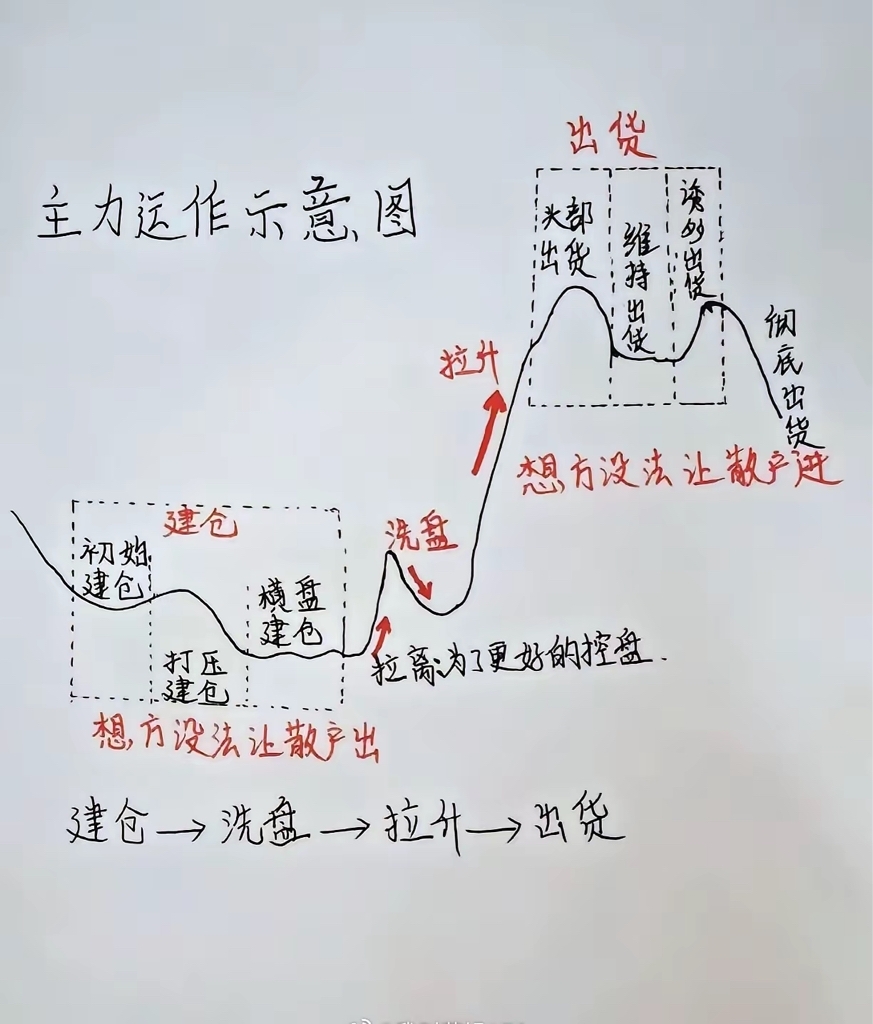 主力运作示意图
出货
头部
出货
维持出货
诱多出货
彻底出货
拉升
想方设法让散户进
建仓
初始
建仓
打压
建仓
横盘
建仓
洗盘
拉离:为了更好的控盘.
想方设法让散户出
建仓→洗盘→拉升→出货